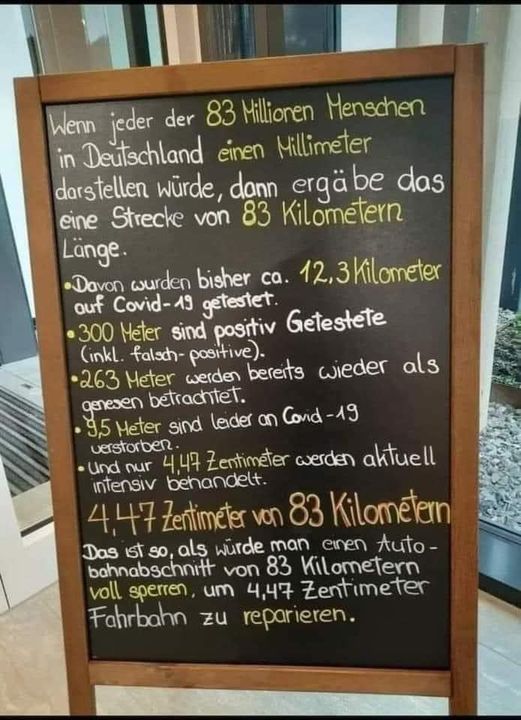 Wenn jeder der 83 Millionen Menschen
in Deutschland einen Millimeter
darstellen würde, dann ergäbe das
eine Strecke von 83 Kilometern
Länge.
•Davon wurden bisher ca. 12,3 Kilometer
auf Covid-19 getestet.
•300 Meter sind positiv Getestete
(inkl. falsch-positive).
•263 Meter werden bereits wieder als
genesen betrachtet.
• 9,5 Meter sind leider an Covid-19
verstorben.
•Und nur 4,47 Zentimeter werden aktuell
intensiv behandelt.
4,47 Zentimeter von 83 Kilometern
Das ist so, als würde man einen Auto-
bahnabschnitt von 83 Kilometern
voll sperren, um 4,47 Zentimeter
Fahrbahn zu reparieren.